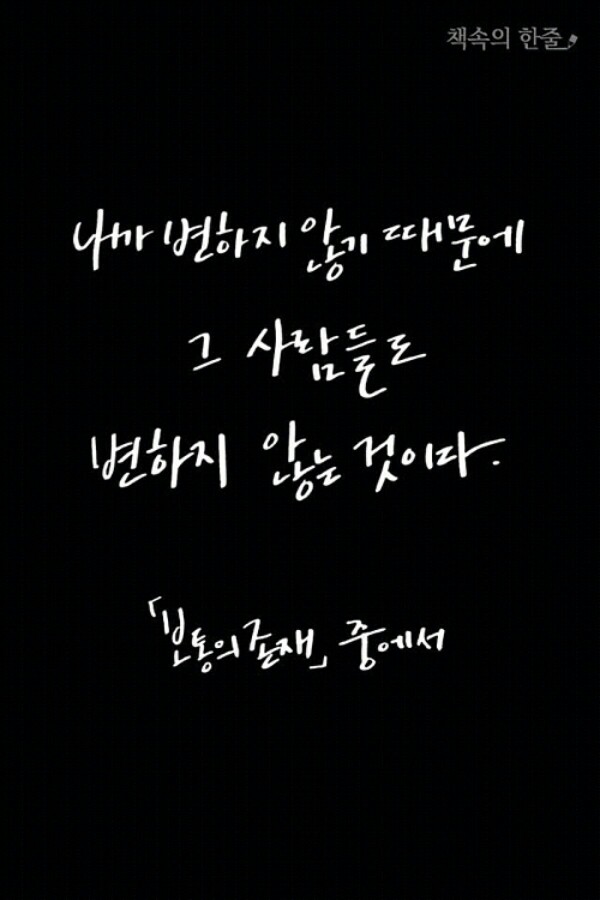 책속의 한줄
나까 변하지 않기 때문에
그 사람들도
변하지 않는 것이다.
「보통의 존재」 중에서